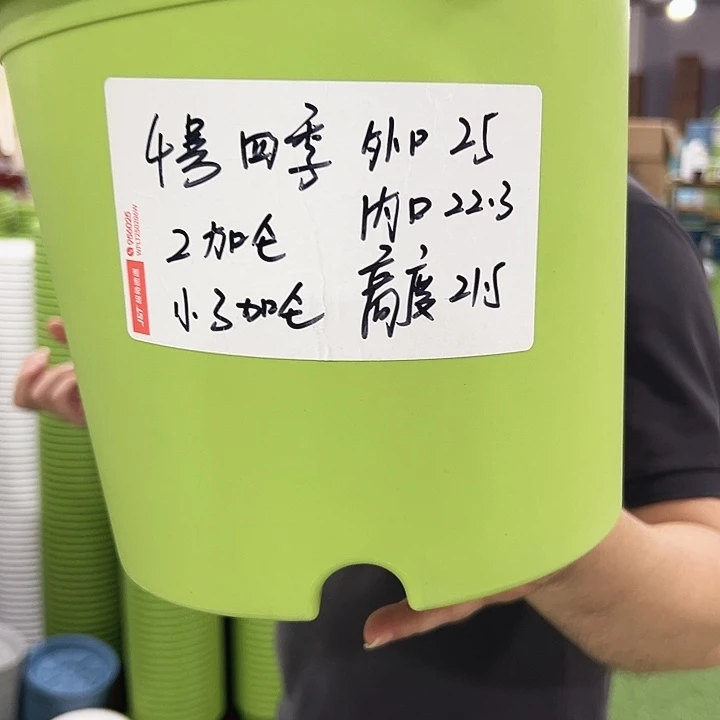 4号 四季 外口 25
内口 22.3
2加仑
高度 21.5
小3加仑
J&T 极兔速递
956025